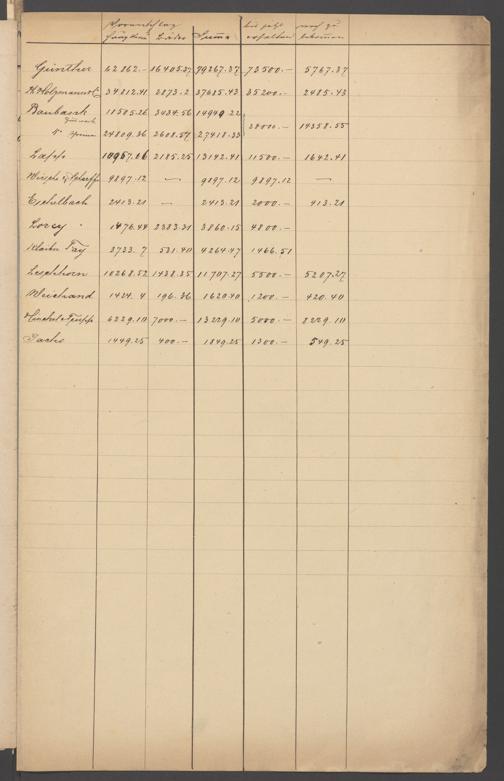 Voranschlag bis jetzt noch zu
Bäder Summe erhalten bekommen
Günther 62862.- 16405.37 79267.37 73500.- 5767.37
Ph. Holzmann & Co 34812.41 2873.2 37685.43 35200.- 2485.43
Baubach 11505.26 3434.56 14949.22
" 24809.36 2608.57 27418.33 28000.- 14358.55
10957.06 2185.25 13142.41 11500.- 1642.41
9897.12 — 9897.12 9897.12 —
Eichelbach 2413.21 — 2413.21 2000.- 413.21
1476.44 2383.31 3860.15 4800.-
Fay 3733.7 531.40 4264.47 1466.51
Leschhorn 10268.52 1438.35 11707.27 5500.- 5207.27
Weintrand 1424.4 196.36 1620.40 1200.- 420.40
6229.10 7000.- 13229.10 5000.- 8229.10
Sachs 1449.25 400.- 1849.25 1300.- 549.25